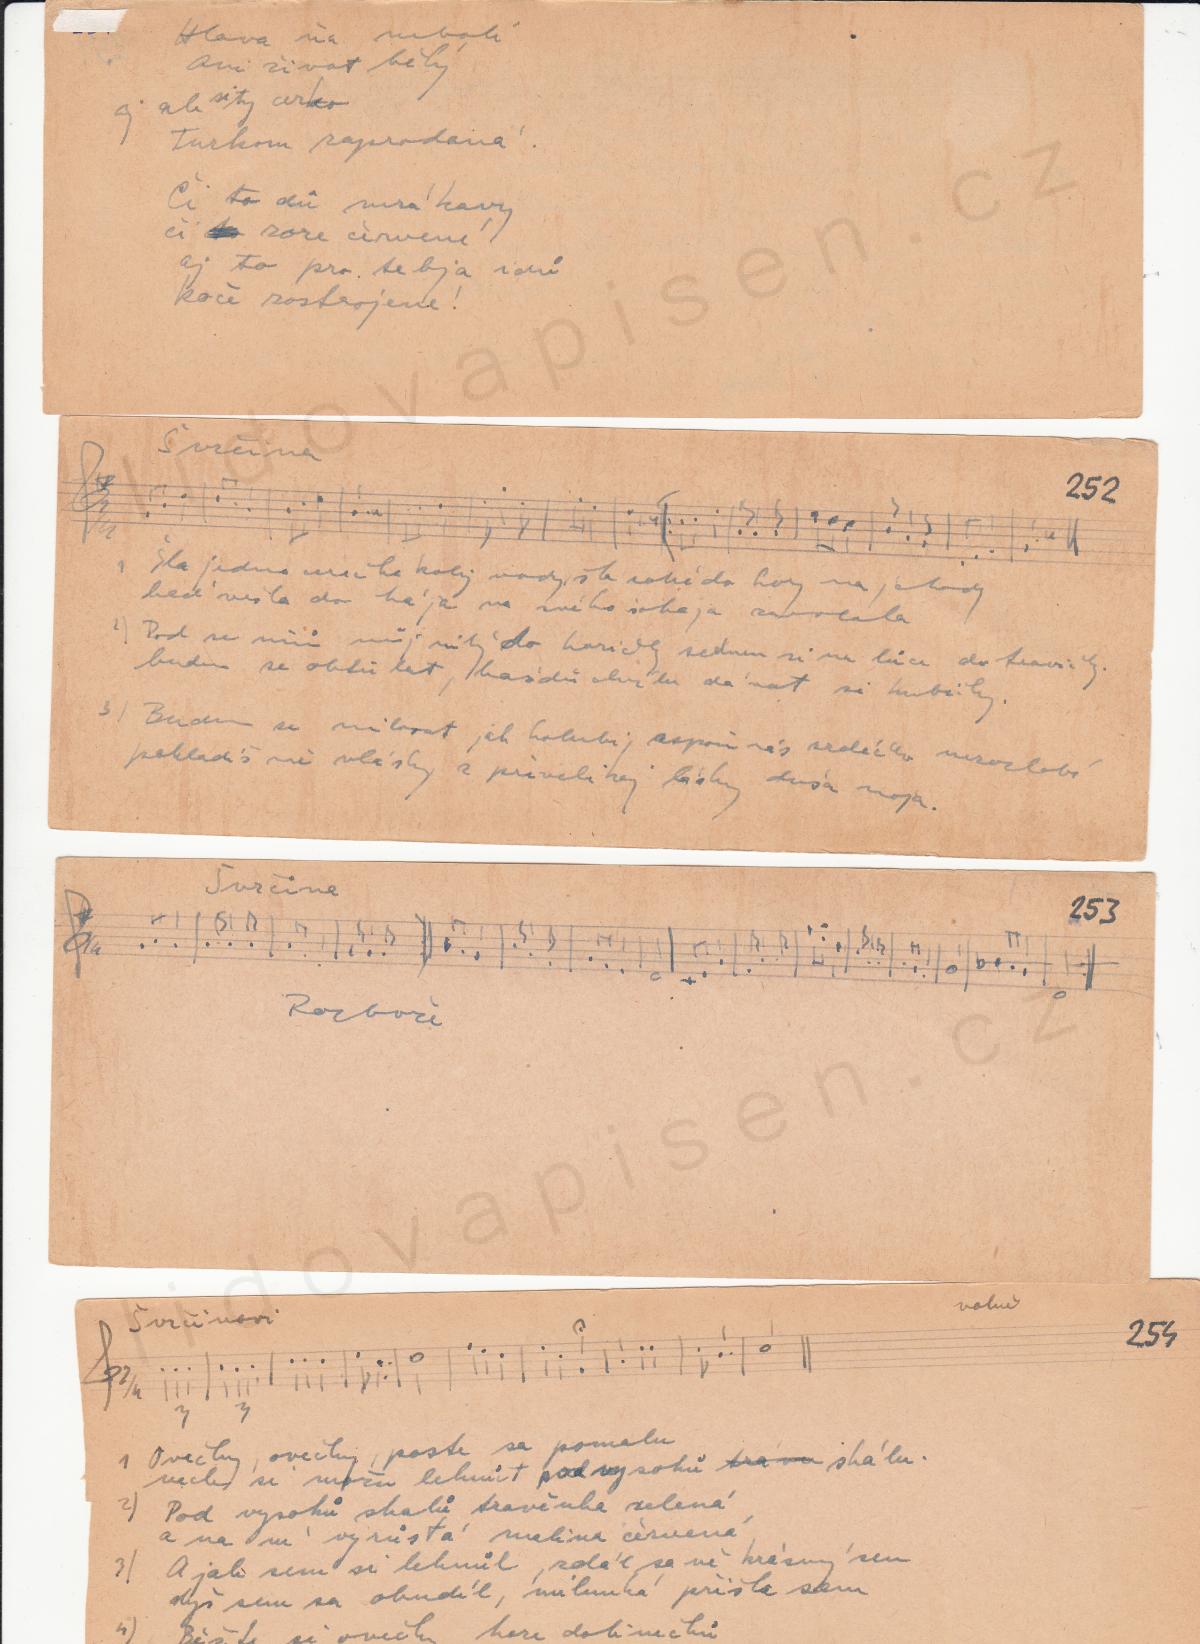 Hlava ňa nebolí
ani život bělý
aj ale sity cerko
Turkom zaprodaná.
Či to dů mrákavy
či to zore červené
aj to pro tebja idů
koče zostrojené!
Švrčina
252
1 Šla jedna do hory na jahody
keď vešla do hája na svého šohaja zavolala
2) Pod se mňů můj milý do horičky sednem si na lúce do travičky.
budem se obúlat, každů chvílu dávat si hubičky.
3) Budem se milovat jak holubi, aspoň nás srdéčko nezozlobí
pokladíš ně vlásky z převelikej lásky duša moja.
Švrčina
253
Rozboře
Švrčinovi
volně
254
1 Ovečky, ovečky, paste sa pomalu
nech si možu lehnůt pod vysoků trávu skálu.
2) Pod vysoků skalů travěnka zelená
a na ní vyrůstá malina červená
3) A jak sem si lehnůl, zdál sa ně krásný sen
dyš sem sa obudíl, milunká přišla sem
4) Běžte si ovečky hore dolinečků
lidovapisen.cz
lidovapisen.cz